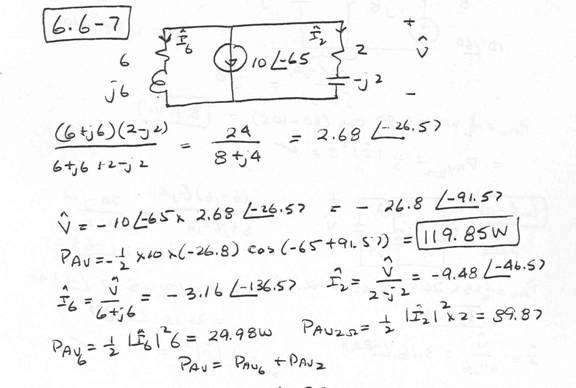 6.6-7
Î₆ 10∠-65 Î₂ + 
6 2 V̂
j6 -j2 -
(6+j6)(2-j2) / 6+j6+2-j2 = 24 / 8+j4 = 2.68 ∠-26.57
V̂ = -10∠-65 x 2.68 ∠-26.57 = -26.8 ∠-91.57
PAV = -1/2 x10x(-26.8) cos(-65+91.57) = 119.85W
Î₆ = V̂ / 6+j6 = -3.16 ∠-136.57 Î₂ = V̂ / 2-j2 = -9.48 ∠-46.57
PAV₆ = 1/2 |Î₆|² 6 = 29.98W PAV2Ω = 1/2 |Î₂|² x2 = 89.87
PAV = PAV₆ + PAV₂